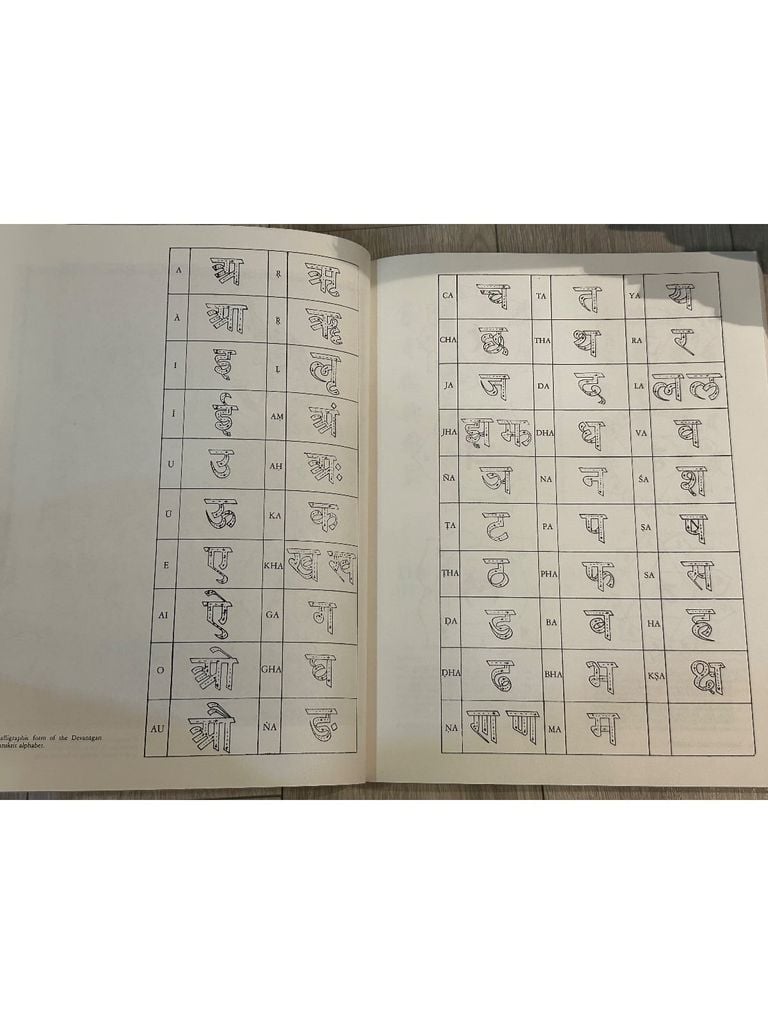 A अ Ṛ ऋ
Ā आ Ṝ ॠ
I इ Ḷ ऌ
Ī ई AM अं
U उ AH अः
Ū ऊ KA क
E ए KHA ख ख
AI ऐ GA ग
O ओ GHA घ
AU औ ṄA ङ
form of the
alphabet.
CA च TA त YA य
CHA छ THA थ RA र
JA ज DA द LA ल ल
JHA झ झ DHA ध VA व
ÑA ञ NA न ŚA श
ṬA ट PA प ṢA ष
ṬHA ठ PHA फ SA स
ḌA ड BA ब HA ह
ḌHA ढ BHA भ KṢA क्ष
ṆA ण ण MA म